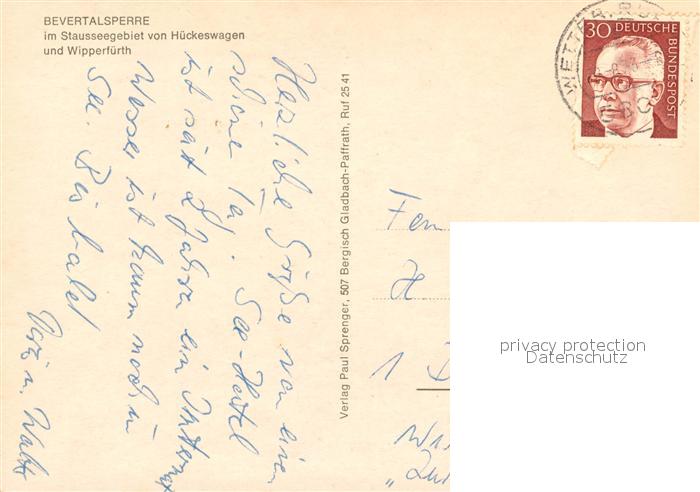 BEVERTALSPERRE
im Stausseegebiet von Hückeswagen
und Wipperfürth
30 DEUTSCHE
BUNDESPOST
WETTER, RUHR
Herzliche Grüße von einer
schöne
See-Hotel
ist seit 2 Jahren ein Internat
Wasser ist kaum noch in
See. Bis bald
u. Walter
Verlag Paul Sprenger, 507 Bergisch Gladbach-Paffrath, Ruf 25 41
Fam
H
1
privacy protection
Datenschutz